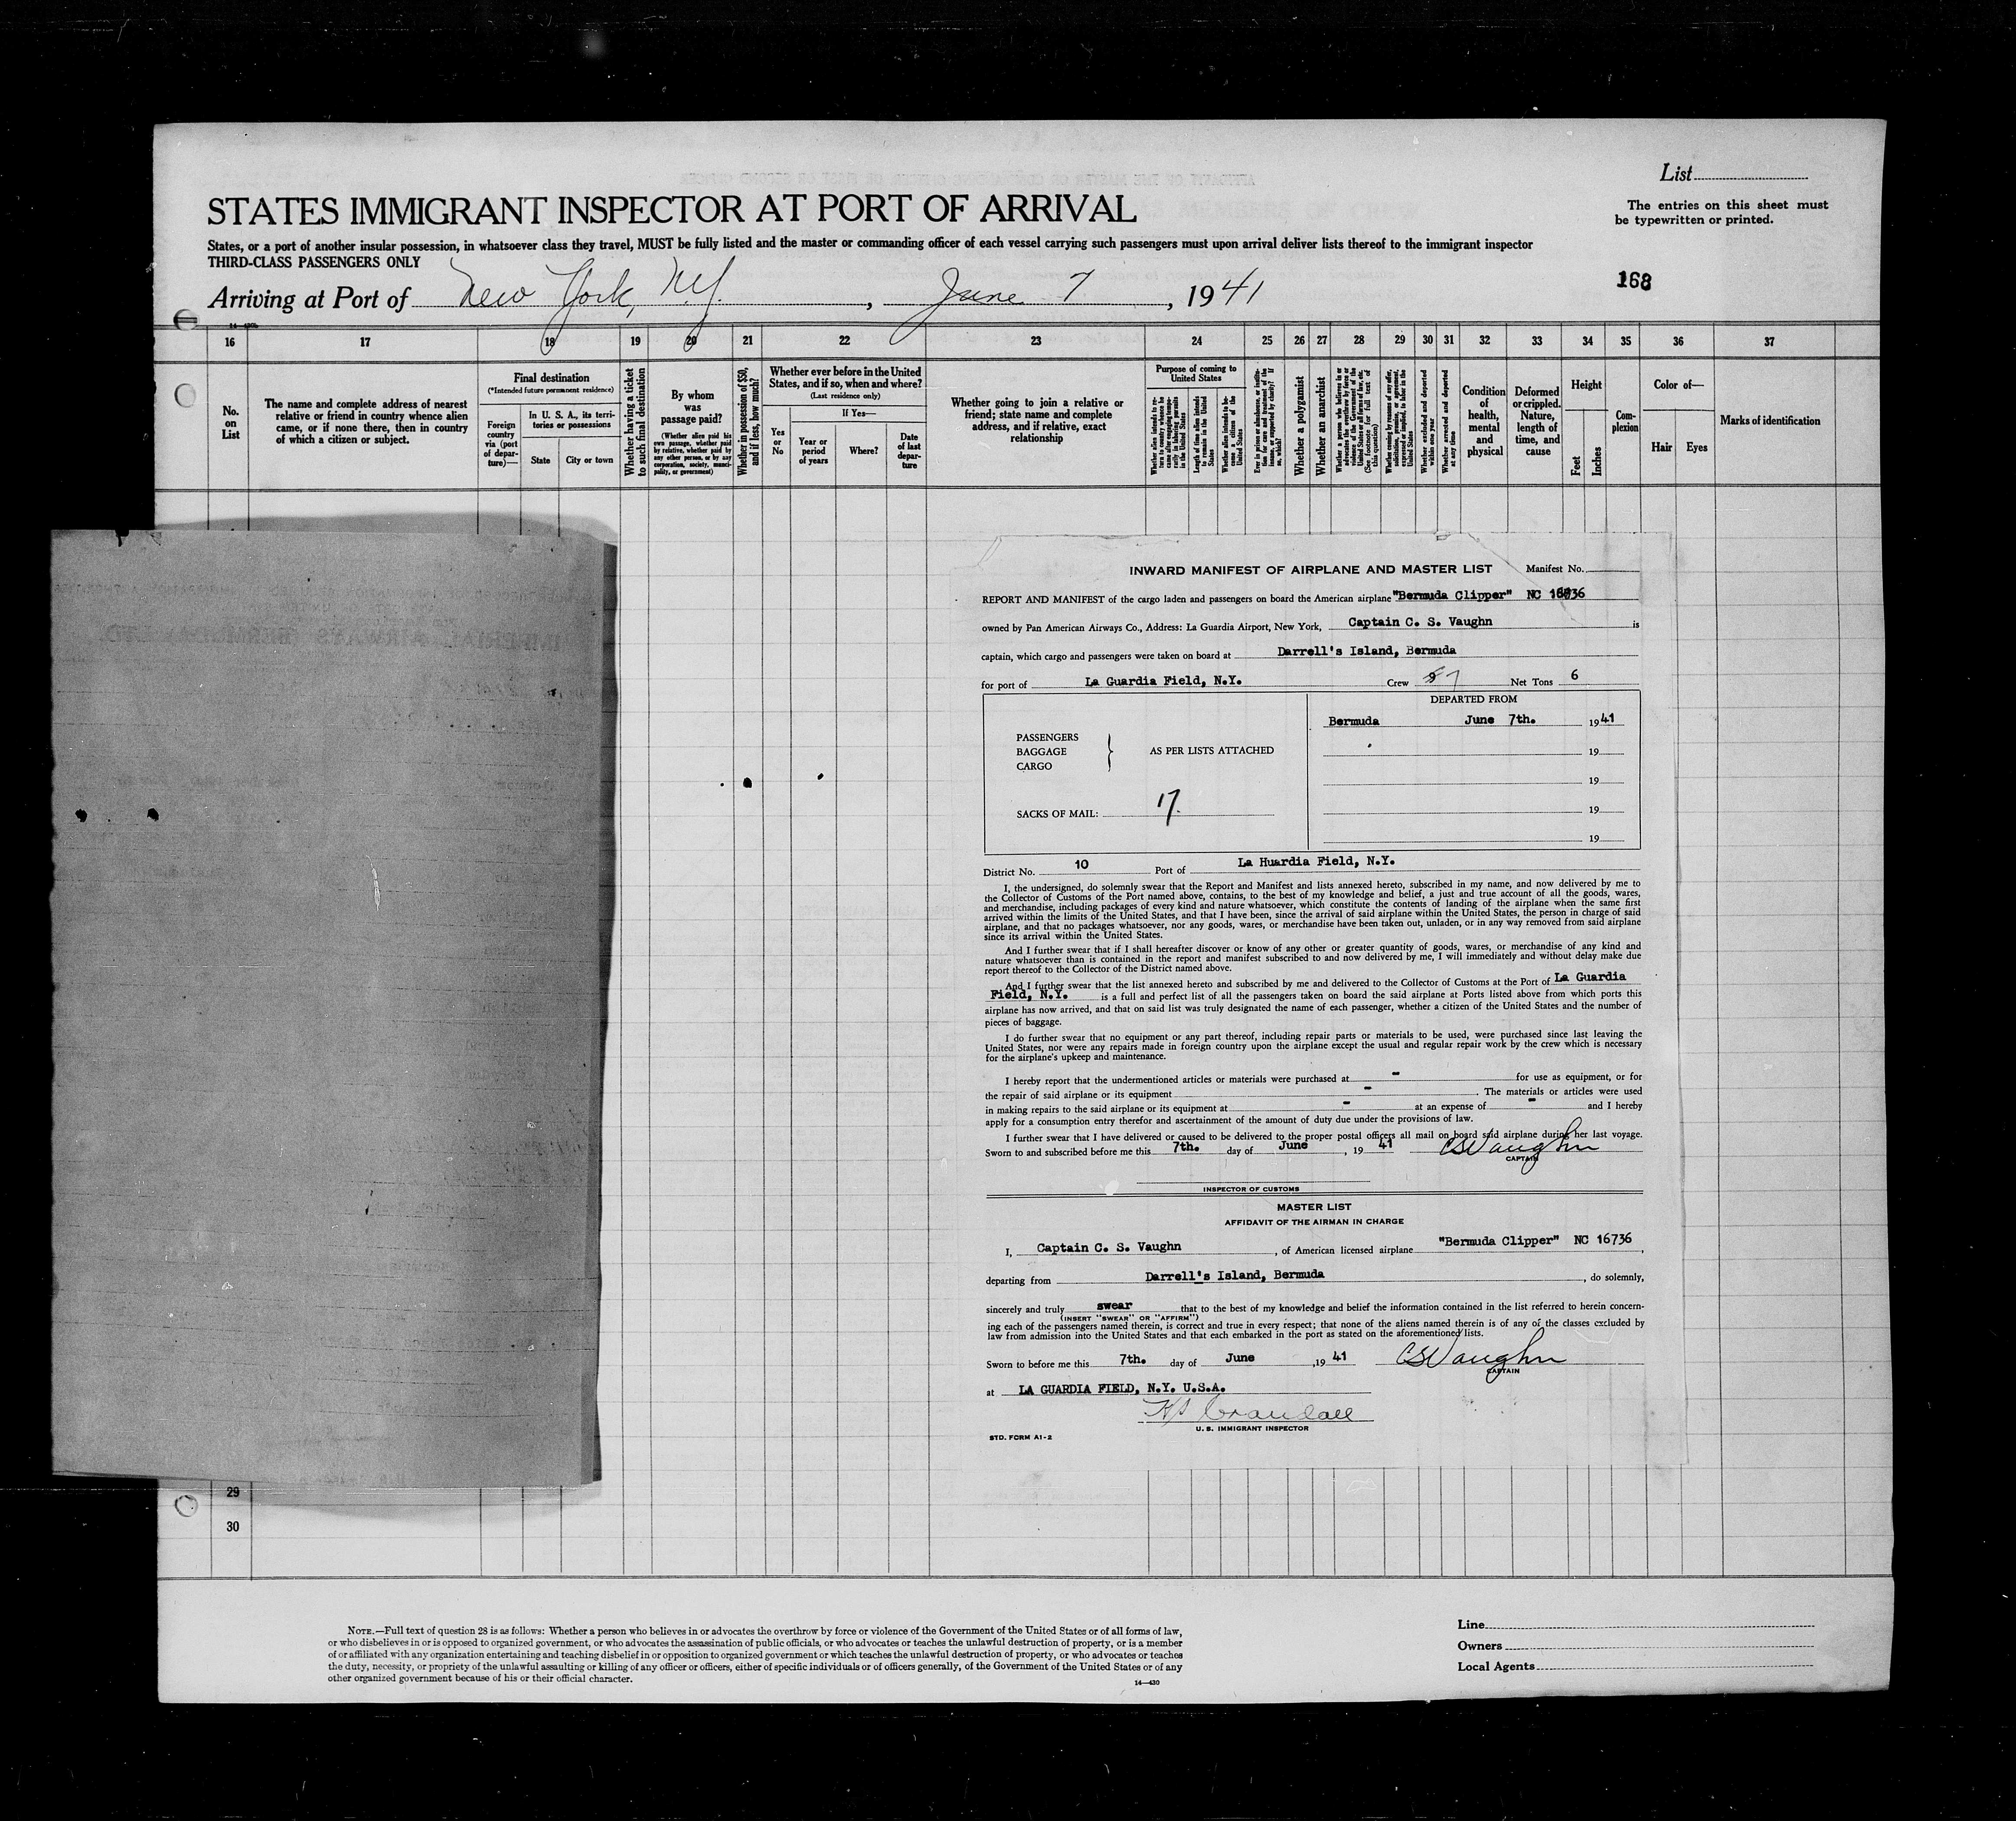 List
STATES IMMIGRANT INSPECTOR AT PORT OF ARRIVAL
The entries on this sheet must
be typewritten or printed.
States, or a port of another insular possession, in whatsoever class they travel, MUST be fully listed and the master or commanding officer of each vessel carrying such passengers must upon arrival deliver lists thereof to the immigrant inspector
THIRD-CLASS PASSENGERS ONLY
168
Arriving at Port of New York, N.Y., June 7, 1941
16 17 18 19 20 21 22 23 24 25 26 27 28 29 30 31 32 33 34 35 36 37
No.
on
List
The name and complete address of nearest
relative or friend in country whence alien
came, or if none there, then in country
of which a citizen or subject.
Final destination
(*Intended future permanent residence)
Foreign
country
via (port
of depar-
ture)—
In U. S. A., its terri-
tories or possessions
State
City or town
Whether having a ticket
to such final destination
By whom
was
passage paid?
(Whether alien paid his
own passage, whether paid
by relative, whether paid by
any other person, or by any
corporation, society, munici-
pality, or government)
Whether in possession of $50,
and if less, how much?
Whether ever before in the United
States, and if so, when and where?
(Last residence only)
If Yes—
Yes
or
No
Year or
period
of years
Where?
Date
of last
depar-
ture
Whether going to join a relative or
friend; state name and complete
address, and if relative, exact
relationship
Purpose of coming to
United States
Length of time alien intends
to remain in the United
States
Whether alien intends to be-
come a citizen of the
United States
Whether a polygamist
Whether an anarchist
Whether excluded and deported
within one year
Whether arrested and deported
at any time
Condition
of
health,
mental
and
physical
Deformed
or crippled.
Nature,
length of
time, and
cause
Height
Feet
Inches
Com-
plexion
Color of—
Hair
Eyes
Marks of identification
INWARD MANIFEST OF AIRPLANE AND MASTER LIST Manifest No.
REPORT AND MANIFEST of the cargo laden and passengers on board the American airplane "Bermuda Clipper" NC 16736
owned by Pan American Airways Co., Address: La Guardia Airport, New York, Captain C. S. Vaughn is
captain, which cargo and passengers were taken on board at Darrell's Island, Bermuda
for port of La Guardia Field, N.Y. Crew 7 Net Tons 6
DEPARTED FROM
Bermuda June 7th. 1941
PASSENGERS
BAGGAGE AS PER LISTS ATTACHED 19
CARGO
19
SACKS OF MAIL: 17. 19
19
District No. 10 Port of La Huardia Field, N.Y.
I, the undersigned, do solemnly swear that the Report and Manifest and lists annexed hereto, subscribed in my name, and now delivered by me to
the Collector of Customs of the Port named above, contains, to the best of my knowledge and belief, a just and true account of all the goods, wares,
and merchandise, including packages of every kind and nature whatsoever, which constitute the contents of landing of the airplane when the same first
arrived within the limits of the United States, and that I have been, since the arrival of said airplane within the United States, the person in charge of said
airplane, and that no packages whatsoever, nor any goods, wares, or merchandise have been taken out, unladen, or in any way removed from said airplane
since its arrival within the United States.
And I further swear that if I shall hereafter discover or know of any other or greater quantity of goods, wares, or merchandise of any kind and
nature whatsoever than is contained in the report and manifest subscribed to and now delivered by me, I will immediately and without delay make due
report thereof to the Collector of the District named above.
And I further swear that the list annexed hereto and subscribed by me and delivered to the Collector of Customs at the Port of La Guardia
Field, N.Y. is a full and perfect list of all the passengers taken on board the said airplane at Ports listed above from which ports this
airplane has now arrived, and that on said list was truly designated the name of each passenger, whether a citizen of the United States and the number of
pieces of baggage.
I do further swear that no equipment or any part thereof, including repair parts or materials to be used, were purchased since last leaving the
United States, nor were any repairs made in foreign country upon the airplane except the usual and regular repair work by the crew which is necessary
for the airplane's upkeep and maintenance.
I hereby report that the undermentioned articles or materials were purchased at - for use as equipment, or for
the repair of said airplane or its equipment -. The materials or articles were used
in making repairs to the said airplane or its equipment at - at an expense of - and I hereby
apply for a consumption entry therefor and ascertainment of the amount of duty due under the provisions of law.
I further swear that I have delivered or caused to be delivered to the proper postal officers all mail on board said airplane during her last voyage.
Sworn to and subscribed before me this 7th. day of June, 19 41 CSVaughn
CAPTAIN
INSPECTOR OF CUSTOMS
MASTER LIST
AFFIDAVIT OF THE AIRMAN IN CHARGE
I, Captain C. S. Vaughn, of American licensed airplane "Bermuda Clipper" NC 16736,
departing from Darrell's Island, Bermuda, do solemnly,
sincerely and truly swear that to the best of my knowledge and belief the information contained in the list referred to herein concern-
(INSERT "SWEAR" OR "AFFIRM")
ing each of the passengers named therein, is correct and true in every respect; that none of the aliens named therein is of any of the classes excluded by
law from admission into the United States and that each embarked in the port as stated on the aforementioned lists.
Sworn to before me this 7th. day of June, 19 41 CSVaughn
CAPTAIN
at LA GUARDIA FIELD, N.Y. U.S.A.
Crandall
U. S. IMMIGRANT INSPECTOR
STD. FORM A1-2
29
30
NOTE.—Full text of question 28 is as follows: Whether a person who believes in or advocates the overthrow by force or violence of the Government of the United States or of all forms of law,
or who disbelieves in or is opposed to organized government, or who advocates the assassination of public officials, or who advocates or teaches the unlawful destruction of property, or is a member
of or affiliated with any organization entertaining and teaching disbelief in or opposition to organized government or which teaches the unlawful destruction of property, or who advocates or teaches
the duty, necessity, or propriety of the unlawful assaulting or killing of any officer or officers, either of specific individuals or of officers generally, of the Government of the United States or of any
other organized government because of his or their official character.
14—430
Line
Owners
Local Agents